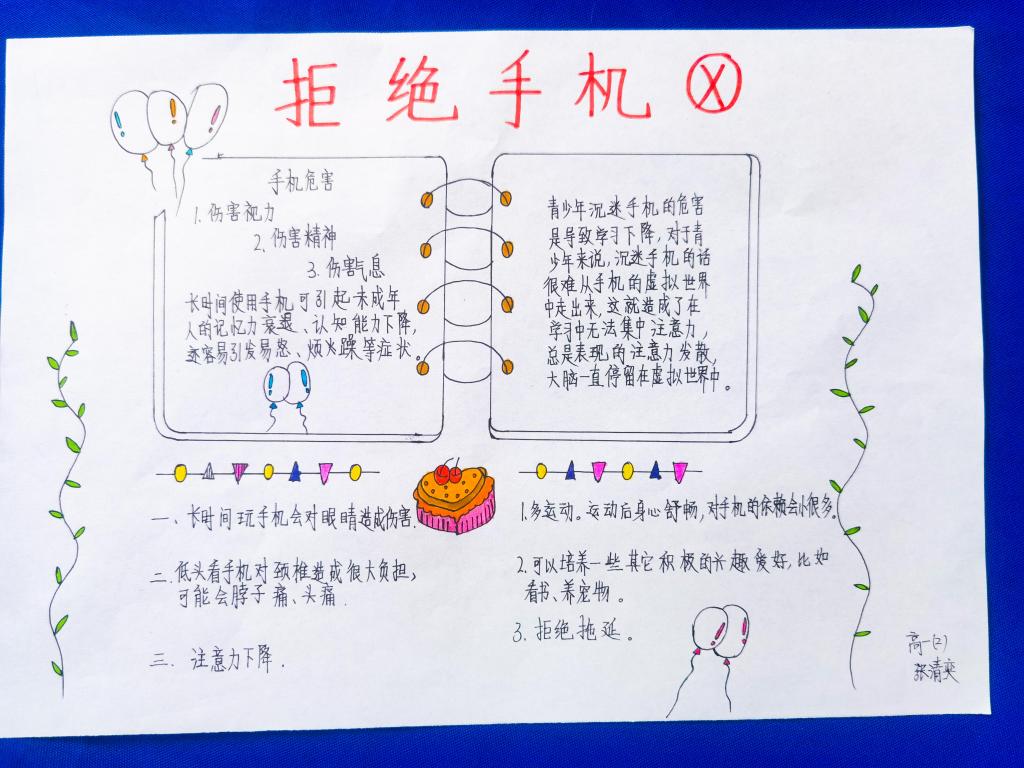 拒绝手机 Ⓧ
手机危害
1.伤害视力
2.伤害精神
3.伤害气息
长时间使用手机可引起未成年
人的记忆力衰退、认知能力下降,
还容易引发易怒、烦火躁等症状。
青少年沉迷手机的危害
是导致学习下降,对于青
少年来说,沉迷手机的话
很难从手机的虚拟世界
中走出来,这就造成了在
学习中无法集中注意力,
总是表现的注意力发散,
大脑一直停留在虚拟世界中。
一、长时间玩手机会对眼睛造成伤害.
二.低头看手机对颈椎造成很大负担,
可能会脖子痛、头痛.
三. 注意力下降.
1.多运动。运动后身心舒畅,对手机的依赖会小很多。
2.可以培养一些其它积极的兴趣爱好,比如
看书、养宠物。
3.拒绝拖延。
高一(2)
张清奕